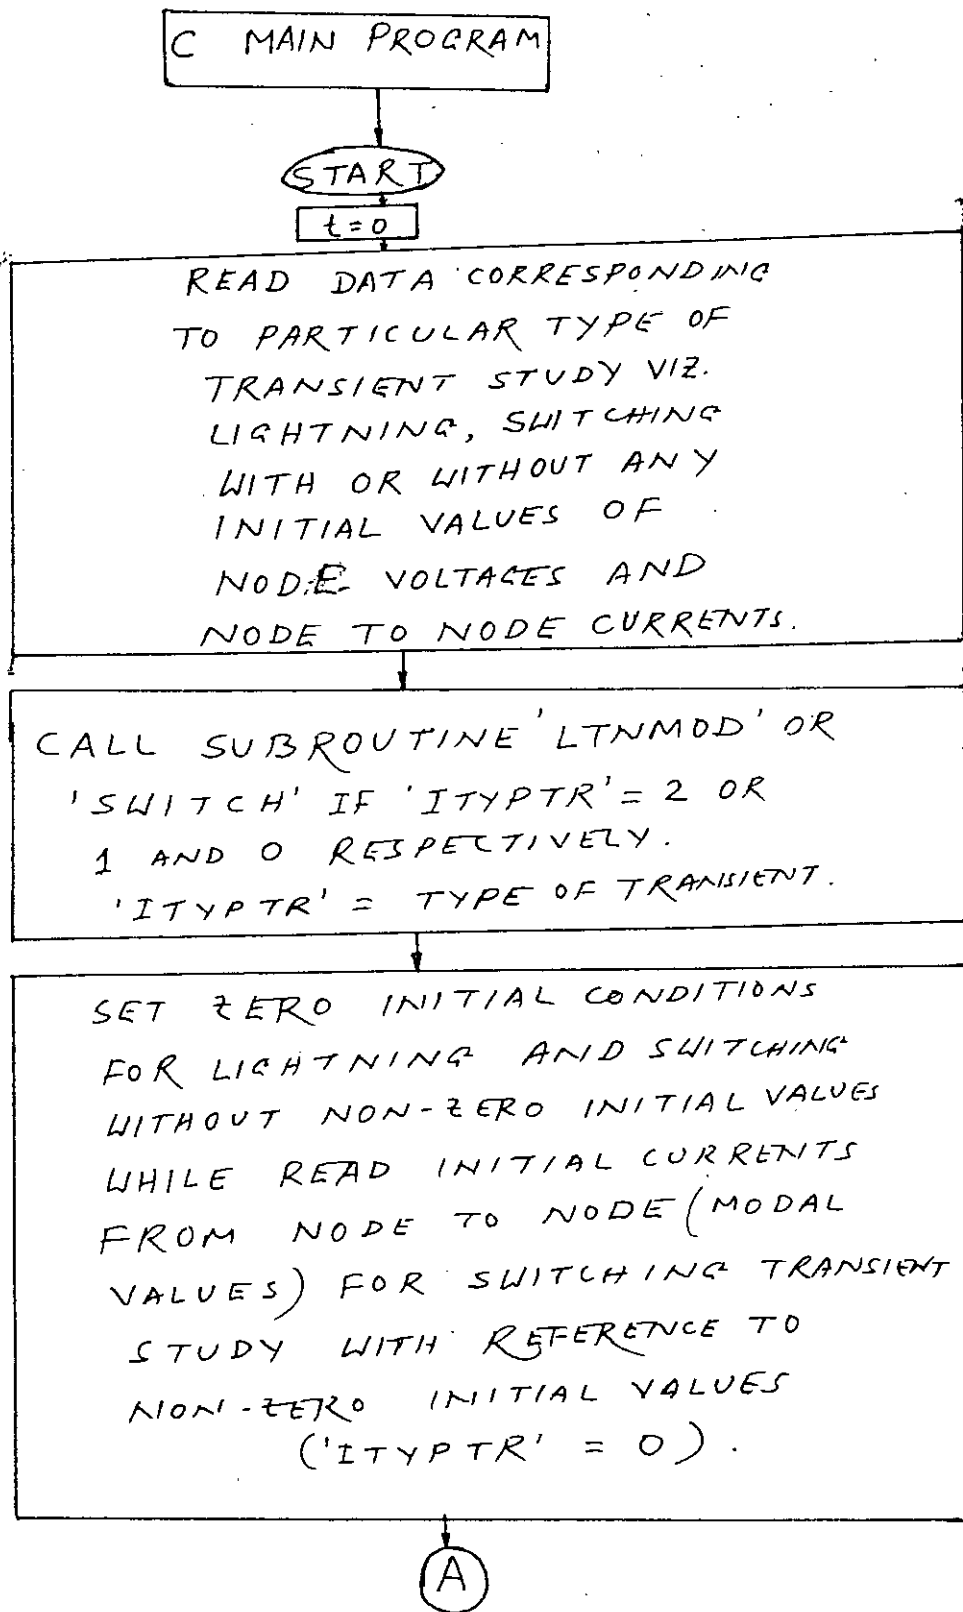 C MAIN PROGRAM
START
t=0
READ DATA CORRESPONDING
TO PARTICULAR TYPE OF
TRANSIENT STUDY VIZ.
LIGHTNING, SWITCHING
WITH OR WITHOUT ANY
INITIAL VALUES OF
NODE VOLTAGES AND
NODE TO NODE CURRENTS.
CALL SUBROUTINE 'LTNMOD' OR
'SWITCH' IF 'ITYPTR' = 2 OR
1 AND 0 RESPECTIVELY.
'ITYPTR' = TYPE OF TRANSIENT.
SET ZERO INITIAL CONDITIONS
FOR LIGHTNING AND SWITCHING
WITHOUT NON-ZERO INITIAL VALUES
WHILE READ INITIAL CURRENTS
FROM NODE TO NODE (MODAL
VALUES) FOR SWITCHING TRANSIENT
STUDY WITH REFERENCE TO
NON-ZERO INITIAL VALUES
('ITYPTR' = 0).
A